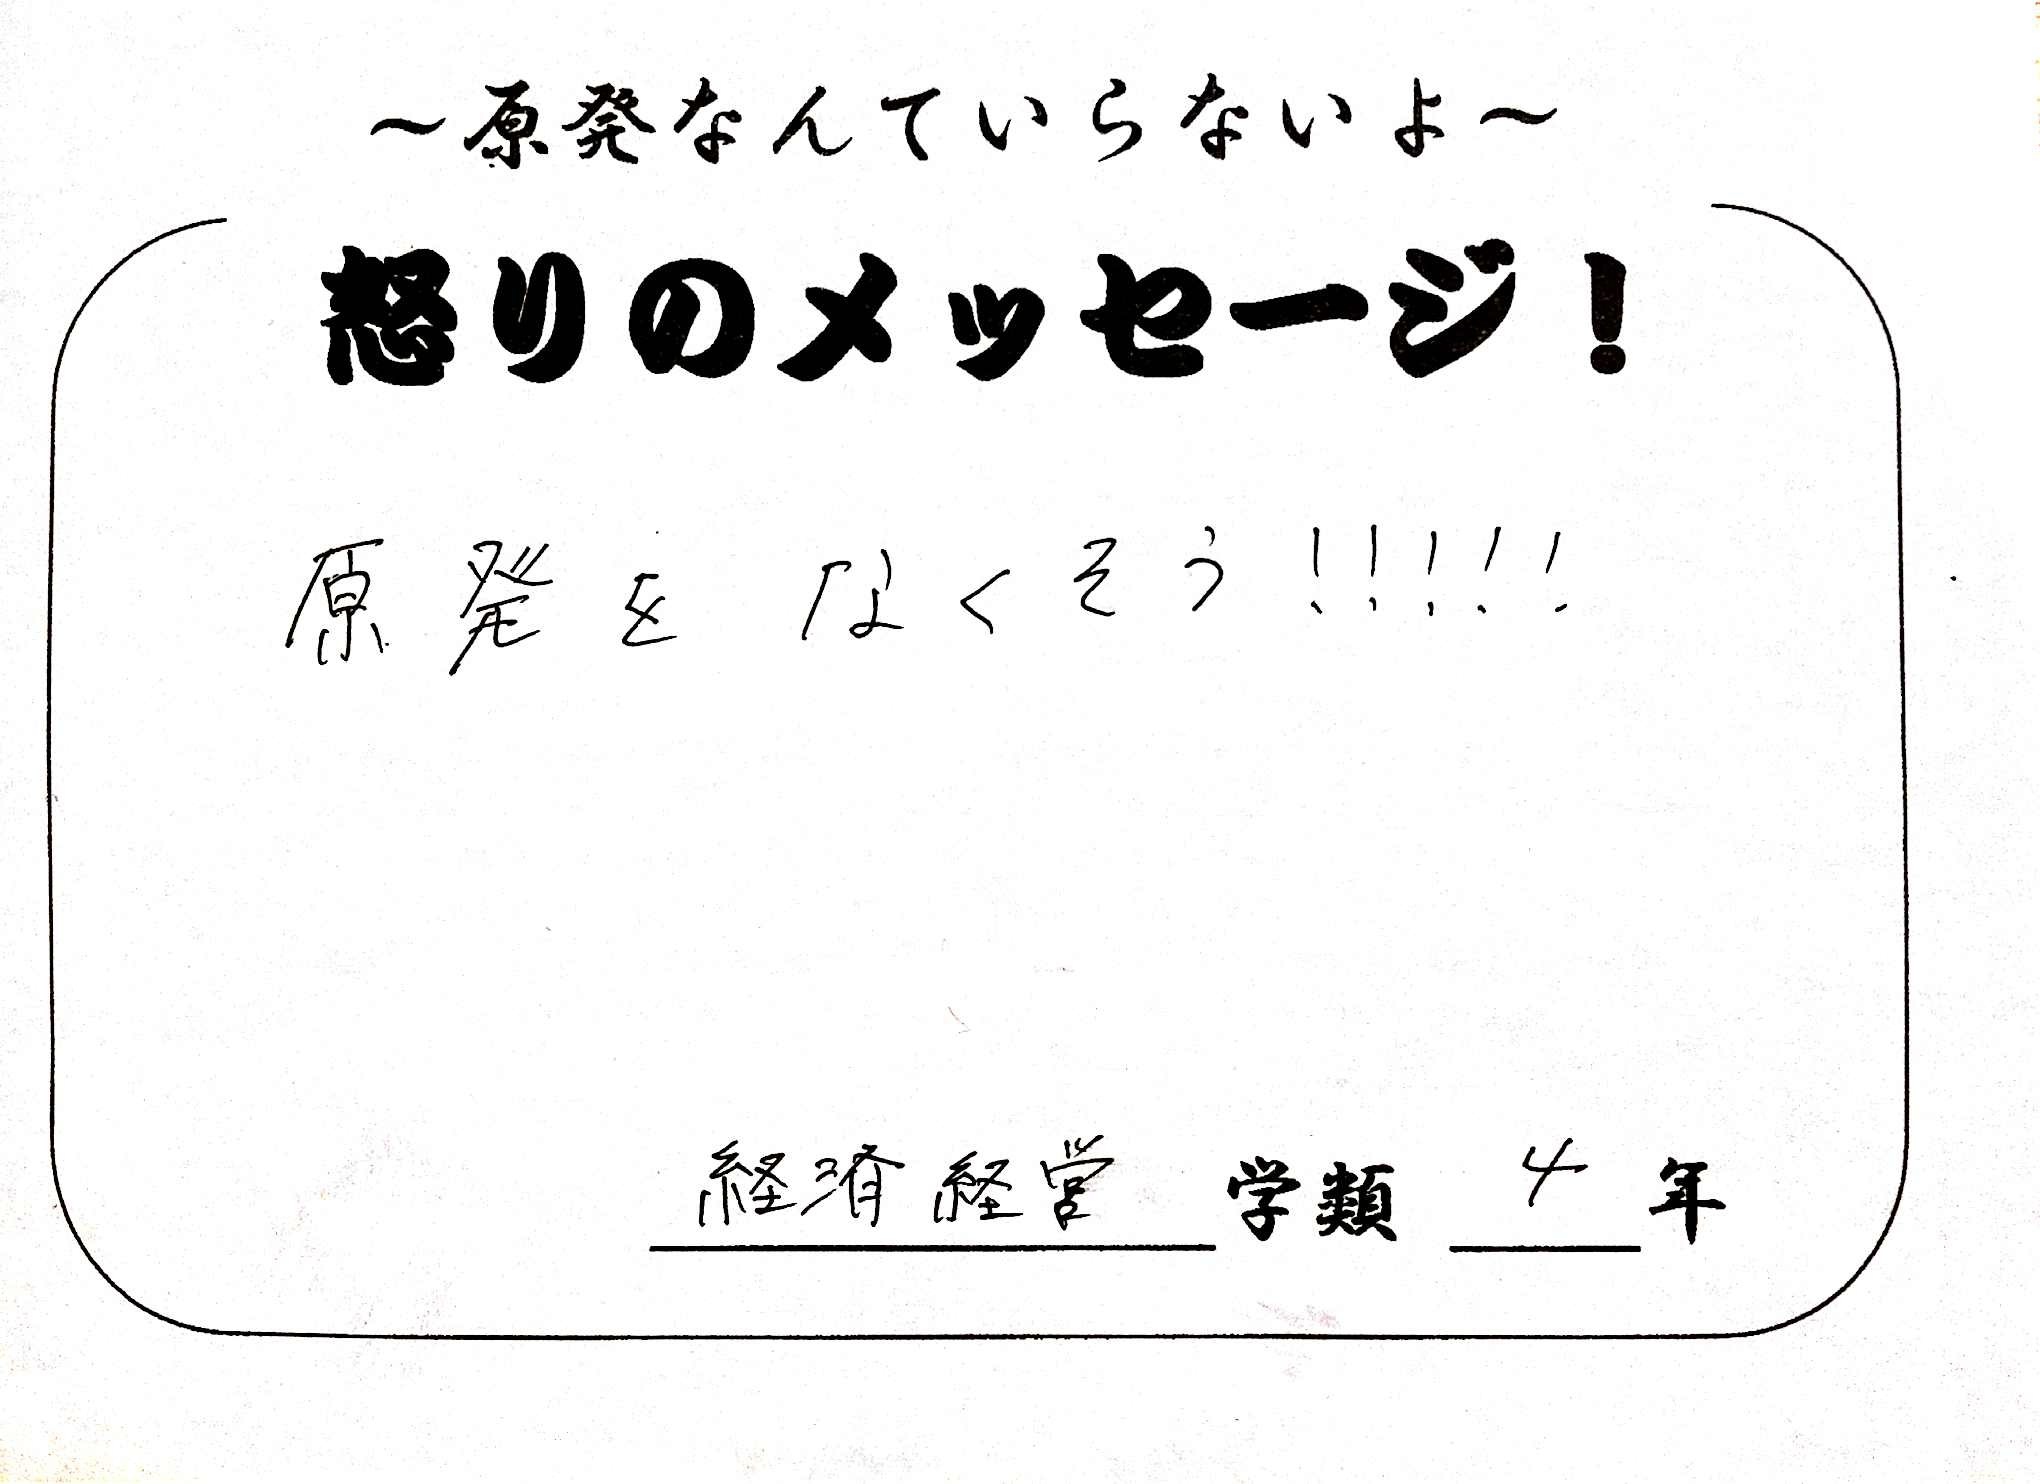 ～原発なんていらないよ～
怒りのメッセージ！
原発をなくそう!!!!!
経済経営学類 4年